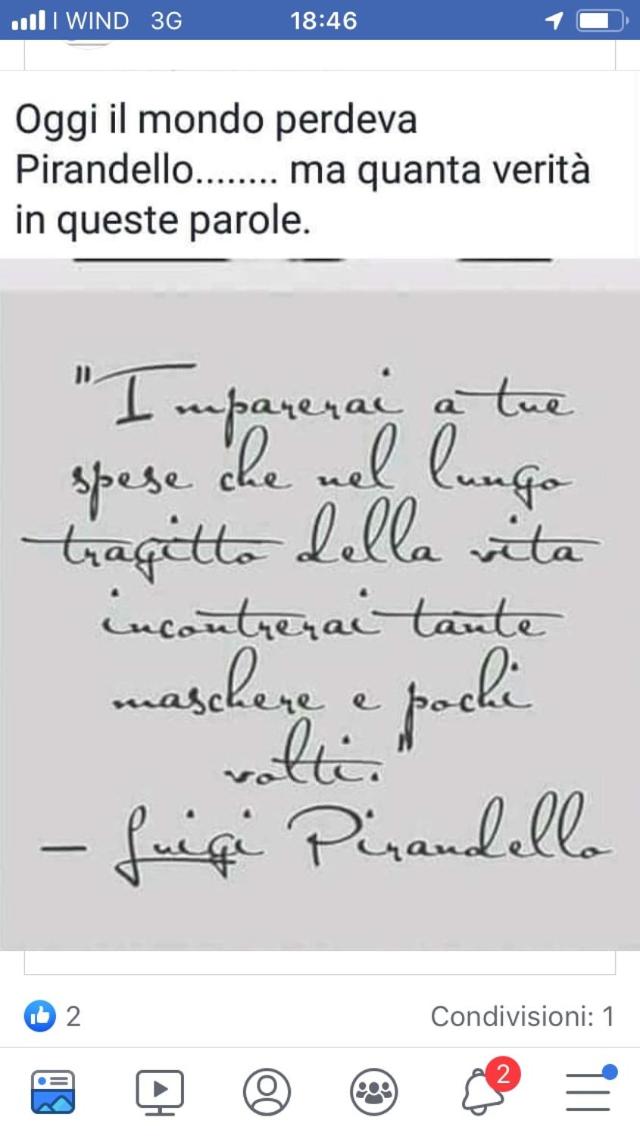 WIND 3G 18:46
Oggi il mondo perdeva
Pirandello........ ma quanta verità
in queste parole.
"Imparerai a tue
spese che nel lungo
tragitto della vita
incontrerai tante
maschere e pochi
volti."
– Luigi Pirandello
2 Condivisioni: 1
2